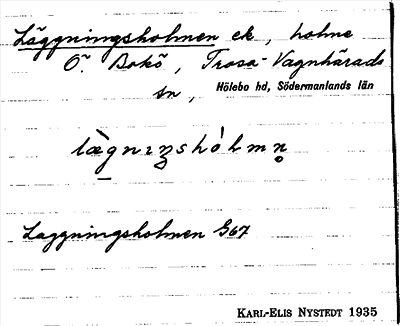 Läggningsholmen ek, holme
Ö. Bokö, Trosa-Vagnhärads
sn, Hölebo hd, Södermanlands län
Laggningsholmen G67
KARL-ELIS NYSTEDT 1935